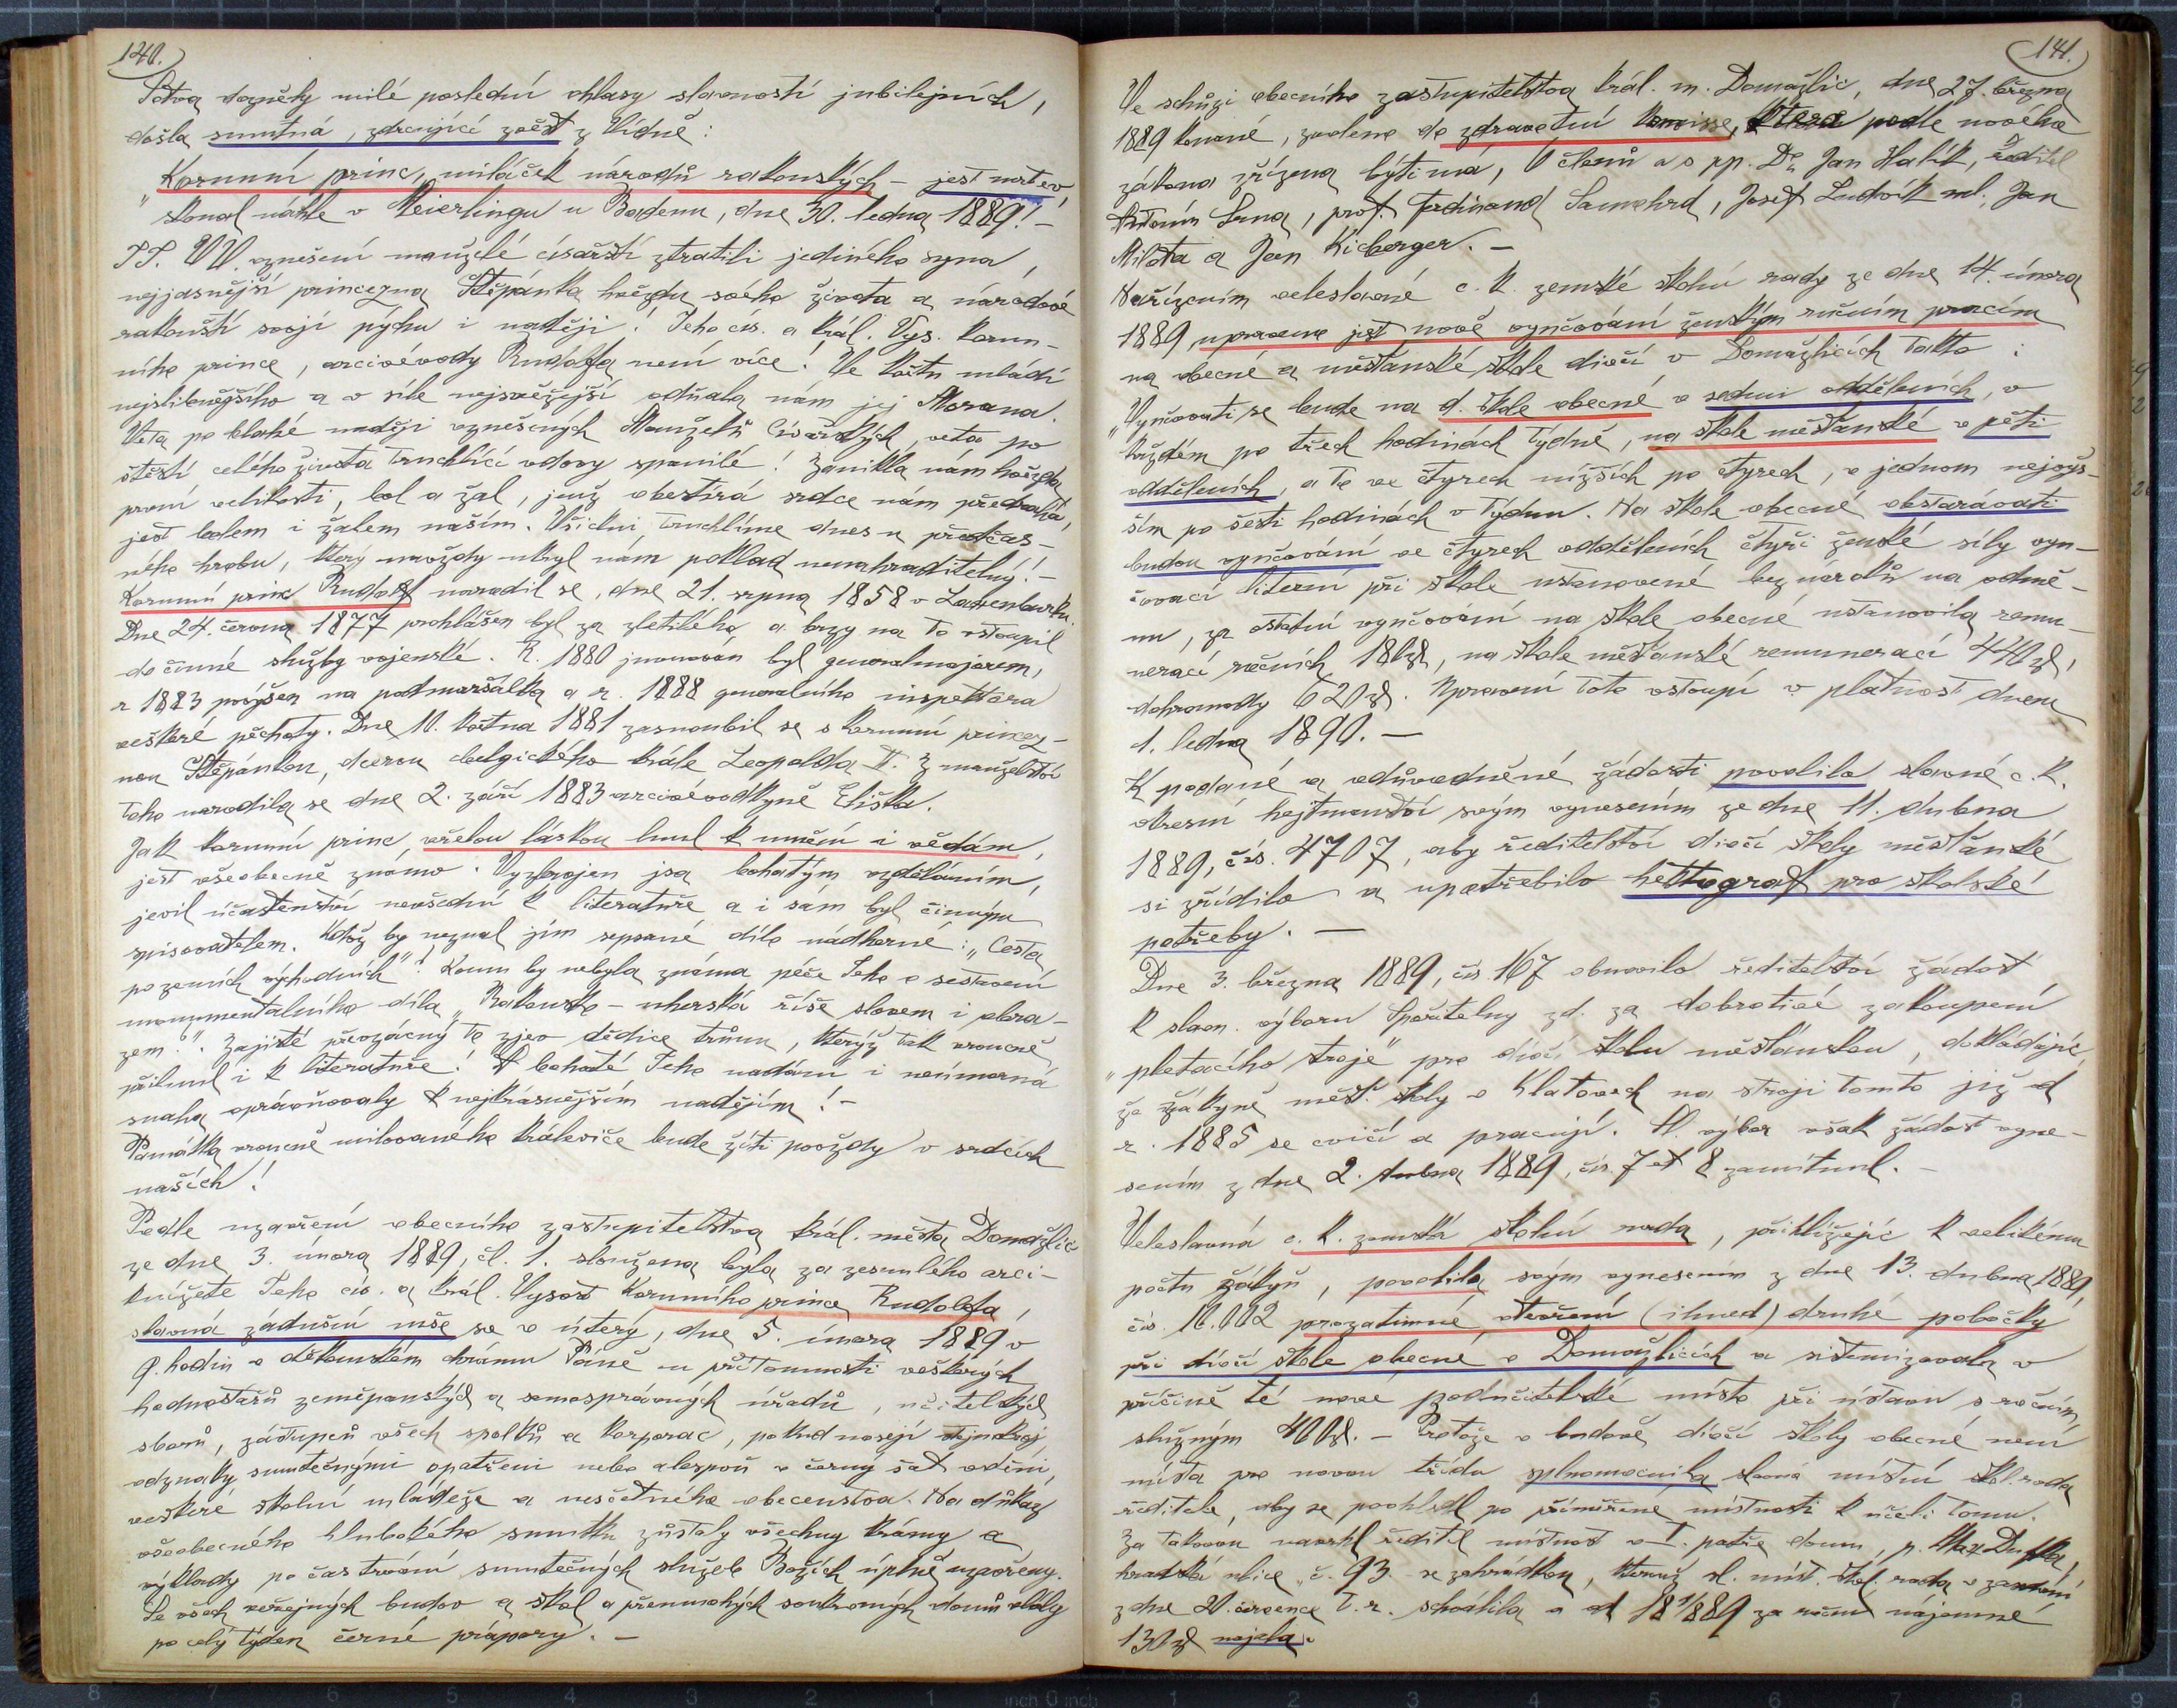 140.
Sotva dozněly milé poslední ohlasy slavností jubilejních,
došla smutná, zdrcující zvěst z Vídně:
„Korunní princ, miláček národů rakouských – jest mrtev,
skonal náhle v Meierlingu u Badenu, dne 30. ledna 1889!–
JJ. VV. vznešení manželé císařští ztratili jediného syna,
nejjasnější princezna Štěpánka hvězdu svého života a národové
rakouští svoji pýchu i naději! Jeho cís. a král. Vys. korun-
ního prince, arcivévody Rudolfa není více! Ve květu mládí
nejslibnějšího a v síle nejsvěžejší odňala nám jej Morana.
Veta po blahé naději vznešených Manželů Císařských, veta po
štěstí celého života truchlící vdovy spanilé! Zanikla nám hvězda
první velikosti, bol a žal, jenž obestírá srdce nám předrahá,
jest bolem i žalem naším. Všickni truchlíme dnes u předčas-
ného hrobu, který navždy ukryl nám poklad nenahraditelný!–
Korunní princ Rudolf narodil se, dne 21. srpna 1858 v Laxenburku.
Dne 24. června 1877 prohlášen byl za zletilého a brzy na to vstoupil
do činné služby vojenské. R. 1880 jmenován byl generalmajorem,
r 1883 povýšen na podmaršálka a r. 1888 generalního inspektora
veškeré pěchoty. Dne 10. května 1881 zasnoubil se s korunní princez-
nou Štěpánkou, dcerou belgického krále Leopolda II. Z manželství
toho narodila se dne 2. září 1883 arcivévodkyně Eliška.
Jak korunní princ vřelou láskou lnul k umění i vědám,
jest všeobecně známo. Vyzbrojen jsa bohatým vzděláním,
jevil účastenství nevšední k literatuře a i sám byl činným
spisovatelem. Kdož by neznal jím sepsané dílo nádherné: „Cesta
po zemích východních“? Komu by nebyla známa péče Jeho o sestavení
monumentalního díla „Rakousko–uherská říše slovem i obra-
zem“? Zajisté převzácný to zjev dědice trůnu, kterýž tak vroucně
přilnul i k literatuře! A bohaté Jeho nadání i neúmorná
snaha opravňovaly k nejkrásnějším nadějím!–
Památka vroucně milovaného králevice bude žíti povždy v srdcích
našich!
Podle uzavření obecního zastupitelstva král. města Domažlic
ze dne 3. února 1889, čl. 1. sloužena byla za zesnulého arci-
knížete Jeho cís. a král. Vysost Korunního prince Rudolfa,
slavná zádušní mše sv. v úterý, dne 5. února 1889 v
9. hodin v děkanském chrámu Páně u přítomnosti veškerých
hodnostářů zeměpanských a samosprávných úřadů, učitelských
sborů, zástupců všech spolků a korporac, pokud nosejí stejnokroj
odznaky smutečnými opatřeni nebo alespoň v černý šat oděni,
veškeré školní mládeže a nesčetného obecenstva. Na důkaz
všeobecného hlubokého smutku zůstaly všechny krámy a
výklady po čas trvání smutečných služeb Božích úplně uzavřeny.
Se všech veřejných budov a škol a přemnohých soukromých domů vlály
po celý týden černé prapory. –
141.
Ve schůzi obecního zastupitelstva král. m. Domažlic, dne 27. března
1889 konané, zvoleno do zdravotní komisse, která podle nového
zákona zřízena býti má, 6 členů a s pp. Dr. Jan Halík, ředitel
Antonín Srna, prof. Ferdinand Samohrd, Josef Ludvík ml., Jan
Milota a Jan Kicberger. –
Nařízením veleslavné c. k. zemské školní rady ze dne 14. února
1889, upraveno jest nově vyučování ženským ručním pracím
na obecné a měšťanské škole dívčí v Domažlicích takto:
„Vyučovati se bude na d. škole obecné v sedmi odděleních, v
každém po třech hodinách týdně, na škole měšťanské v pěti
odděleních, a to ve čtyrech nižších po čtyrech, v jednom nejvyš-
ším po šesti hodinách v týdnu. Na škole obecné obstarávati
budou vyučování ve čtyrech odděleních čtyři ženské síly vyu-
čovací literní při škole ustanovené bez nároků na odmě-
nu, za ostatní vyučování na škole obecné ustanovila remu-
nerací ročních 180 zl, na škole měšťanské remunerací 440 zl,
dohromady 620 zl. Upravení toto vstoupí v platnost dnem
1. ledna 1890. –
K podané a odůvodněné žádosti povolilo slavné c. k.
okresní hejtmanství svým vynesením ze dne 11. dubna
1889, čís. 4707, aby ředitelství dívčí školy měšťanské
si zřídilo a upotřebilo hektograf pro školské
potřeby. –
Dne 3. března 1889, čís 167 obnovilo ředitelství žádost
k slavn. výboru Spořitelny zd. za dobrotivé zakoupení
„pletacího stroje“ pro dívčí školu měšťanskou, dokládajíc,
že žákyně měšť. školy v Klatovech na stroji tomto již od
r. 1885 se cvičí a pracují. Sl. výbor však žádost vyne-
sením z dne 2. dubna 1889, čís. 7 et 8 zamítnul. –
Veleslavná c. k. zemská školní rada, přihlížejíc k velikému
počtu žákyň, povolila svým vynesením z dne 13. dubna 1889,
čís. 10.002 prozatimné otevření (ihned) druhé pobočky
při dívčí škole obecné v Domažlicích a sistemizovala v
příčině té nové podučitelské místo při ústavu s ročním
služným 400 zl. – Protože v budově dívčí školy obecné není
místa pro novou třídu splnomocnila slavná místní škol. rada
ředitele, aby se poohlédl po přiměřené místnosti k účeli tomu.
Za takovou navrhl ředitel místnost v I. patře domu, p. Max Dufka,
hradská ulice, č. 93. se zahrádkou, kterouž sl. míst. škol. rada v zasedání
z dne 20. července t. r. schválila a od 18 1/8 89 za roční nájemné
130 zl najala.